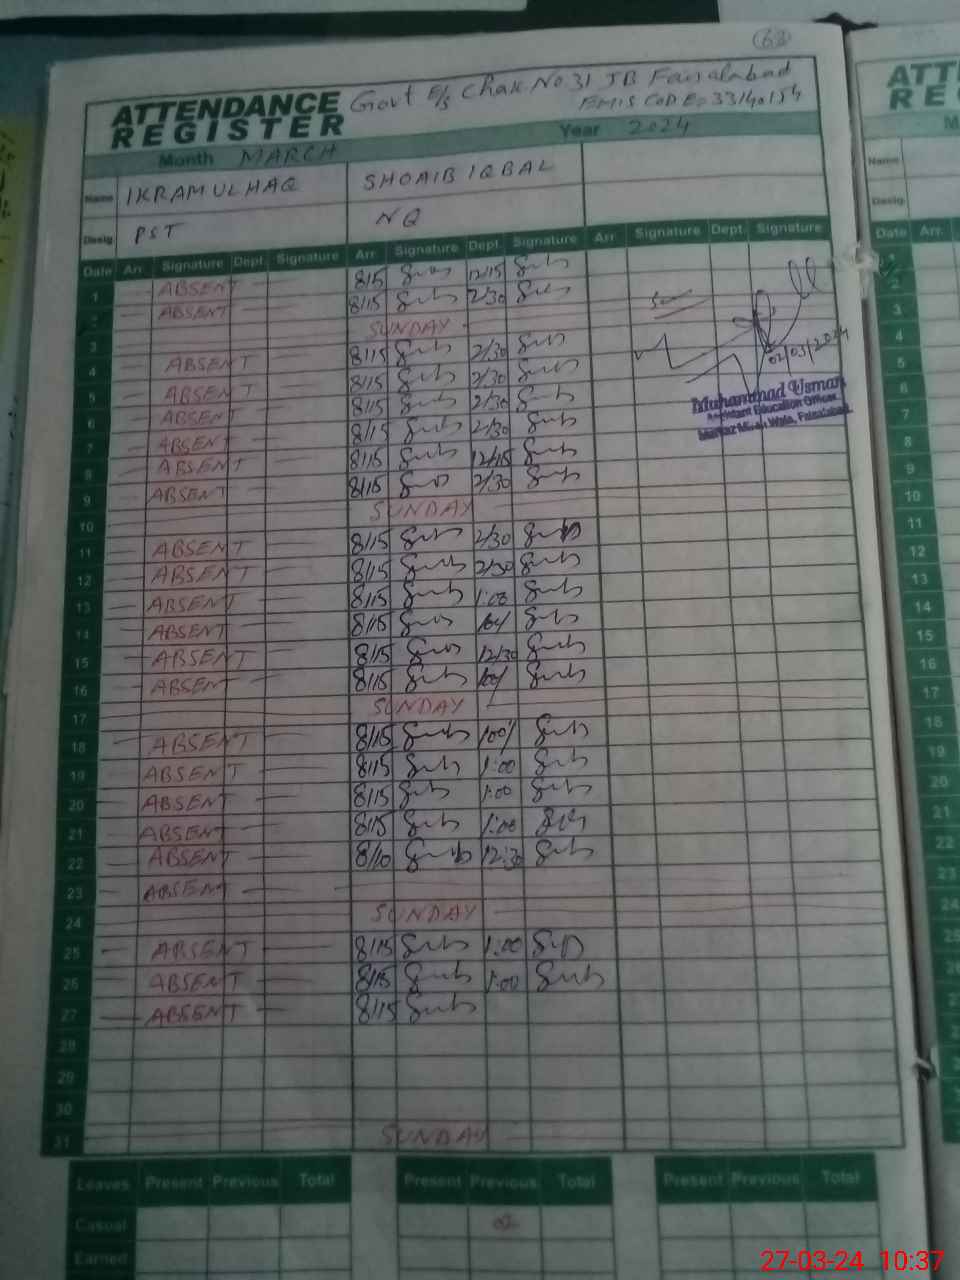 63
ATTENDANCE REGISTER Govt E/S Chak No 31 JB Faisalabad
EMIS CODE = 33140154
Month MARCH Year 2024
Name IKRAM UL HAQ SHOAIB IQBAL
Desig. PST NQ
Date Arr. Signature Dept. Signature Arr. Signature Dept. Signature Arr Signature Dept. Signature
1 — ABSENT — 8/15 12/15
2 — ABSENT — 8/15 2/30
3 SUNDAY
4 ABSENT — 8/15 2/30
5 — ABSENT — 8/15 2/30
6 — ABSENT — 8/15 2/30
7 — ABSENT — 8/15 2/30
8 — ABSENT — 8/15
9 — ABSENT — 8/15 2/30
10 SUNDAY
11 — ABSENT — 8/15 2/30
12 — ABSENT — 8/15 2/30
13 — ABSENT — 8/15 1:00
14 — ABSENT — 8/15
15 — ABSENT — 8/15 12/30
16 — ABSENT — 8/15
17 SUNDAY
18 — ABSENT — 8/15
19 — ABSENT — 8/15 1:00
20 — ABSENT — 8/15 1:00
21 — ABSENT — 8/15 1:00
22 — ABSENT — 8/10 12:30
23 — ABSENT —
24 SUNDAY
25 — ABSENT — 8/15 1:00
26 — ABSENT — 8/15 1:00
27 — ABSENT — 8/15
28
29
30
31 SUNDAY
02/03/2024
Muhammad Usman
Assistant Education Officer
Wala, Faisalabad.
Leaves Present Previous Total Present Previous Total Present Previous Total
Casual 02
Earned
ATT
RE
M
Name
Desig.
Date Arr.
2
3
4
5
6
7
8
9
10
11
12
13
14
15
16
17
18
19
20
21
22
23
24
25
27-03-24 10:37